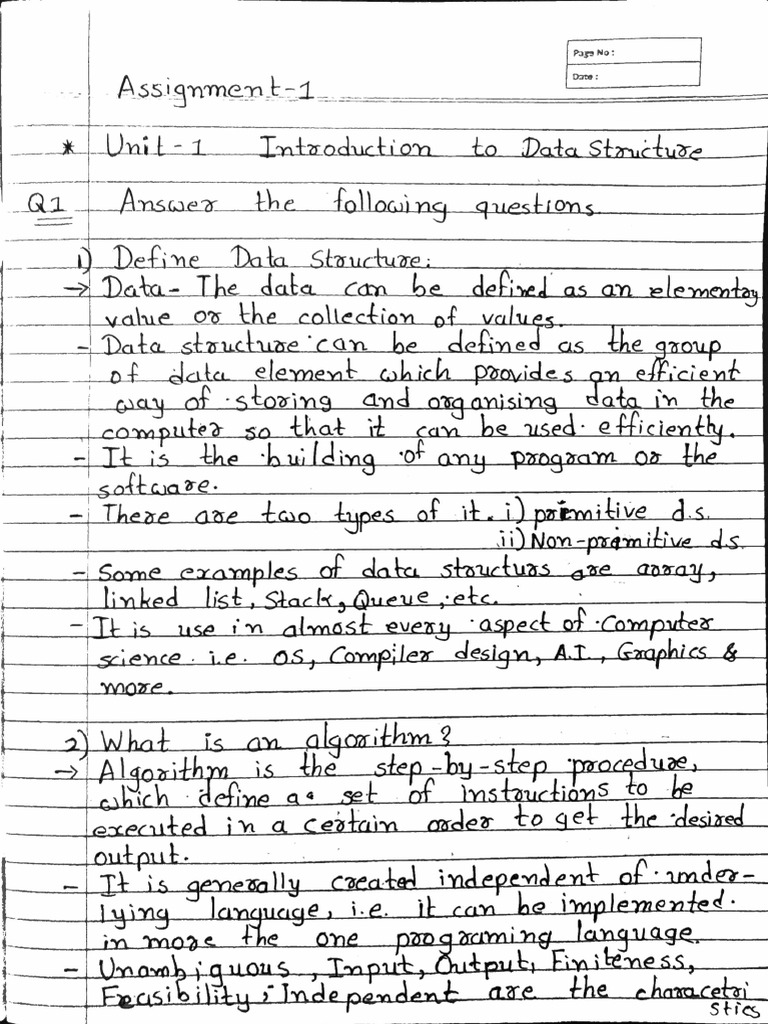 Page No :
Date :
Assignment-1
* Unit-1 Introduction to Data Structure
Q1 Answer the following questions.
1) Define Data Structure:
→ Data- The data can be defined as an elementary
value or the collection of values.
- Data structure can be defined as the group
of data element which provides an efficient
way of storing and organising data in the
computer so that it can be used efficiently.
- It is the building of any program or the
software.
- There are two types of it. i) primitive d.s.
ii) Non-primitive d.s.
- Some examples of data structurs are array,
linked list, Stack, Queue, etc.
- It is use in almost every aspect of Computer
science i.e. OS, Compiler design, A.I., Graphics &
more.
2) What is an algorithm?
→ Algorithm is the step-by-step procedure,
which define a set of instructions to be
executed in a certain order to get the desired
output.
- It is generally created independent of under-
lying language, i.e. it can be implemented.
in more the one programing language.
- Unambiguous, Input, Output, Finiteness,
Feasibility, Independent are the characetri
stics